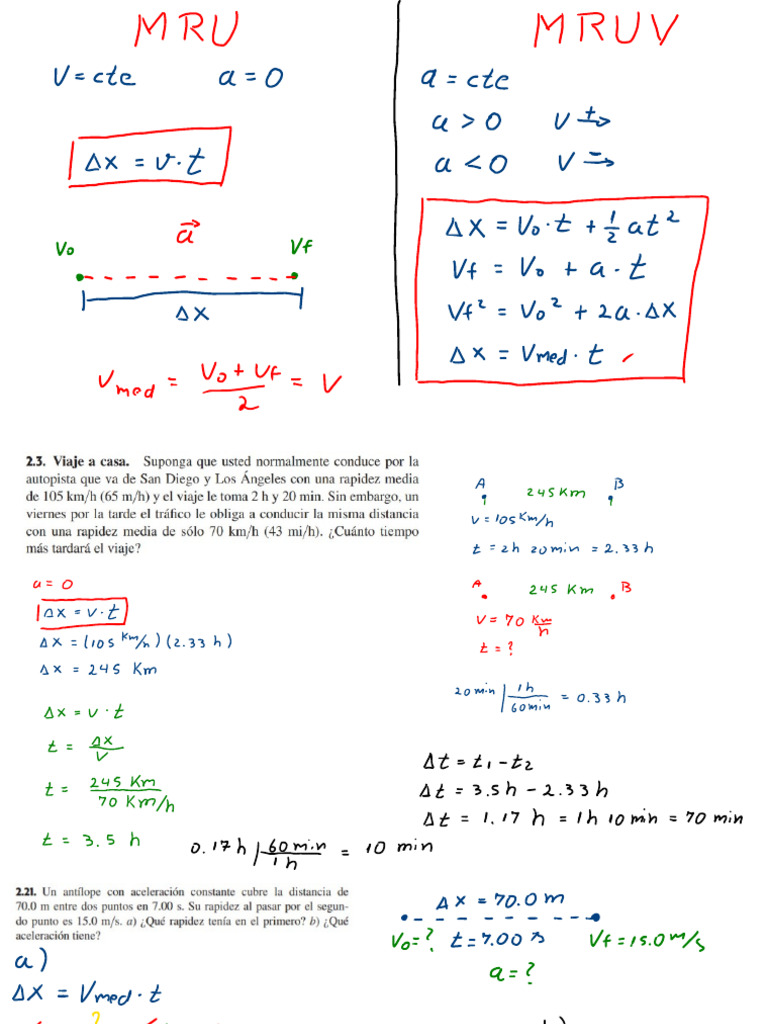 MRU
V = cte a = 0
Δx = v·t
a
Vo Vf
Δx
Vmed = Vo + Vf / 2 = V
MRUV
a = cte
a > 0 V +
a < 0 V -
Δx = Vo·t + 1/2 at²
Vf = Vo + a·t
Vf² = Vo² + 2a·Δx
Δx = Vmed·t
2.3. Viaje a casa. Suponga que usted normalmente conduce por la
autopista que va de San Diego y Los Ángeles con una rapidez media
de 105 km/h (65 m/h) y el viaje le toma 2 h y 20 min. Sin embargo, un
viernes por la tarde el tráfico le obliga a conducir la misma distancia
con una rapidez media de sólo 70 km/h (43 mi/h). ¿Cuánto tiempo
más tardará el viaje?
A 245 Km B
V = 105 Km/h
t = 2h 20min = 2.33h
A 245 Km B
V = 70 Km/h
t = ?
20min | 1h / 60min = 0.33h
a = 0
Δx = v·t
Δx = (105 Km/h)(2.33 h)
Δx = 245 Km
Δx = v·t
t = Δx / V
t = 245 Km / 70 Km/h
t = 3.5 h
0.17h | 60min / 1h = 10 min
Δt = t1 - t2
Δt = 3.5h - 2.33h
Δt = 1.17 h = 1h 10min = 70 min
2.21. Un antílope con aceleración constante cubre la distancia de
70.0 m entre dos puntos en 7.00 s. Su rapidez al pasar por el segun-
do punto es 15.0 m/s. a) ¿Qué rapidez tenía en el primero? b) ¿Qué
aceleración tiene?
Δx = 70.0 m
Vo = ? t = 7.00 s Vf = 15.0 m/s
a = ?
a)
Δx = Vmed·t